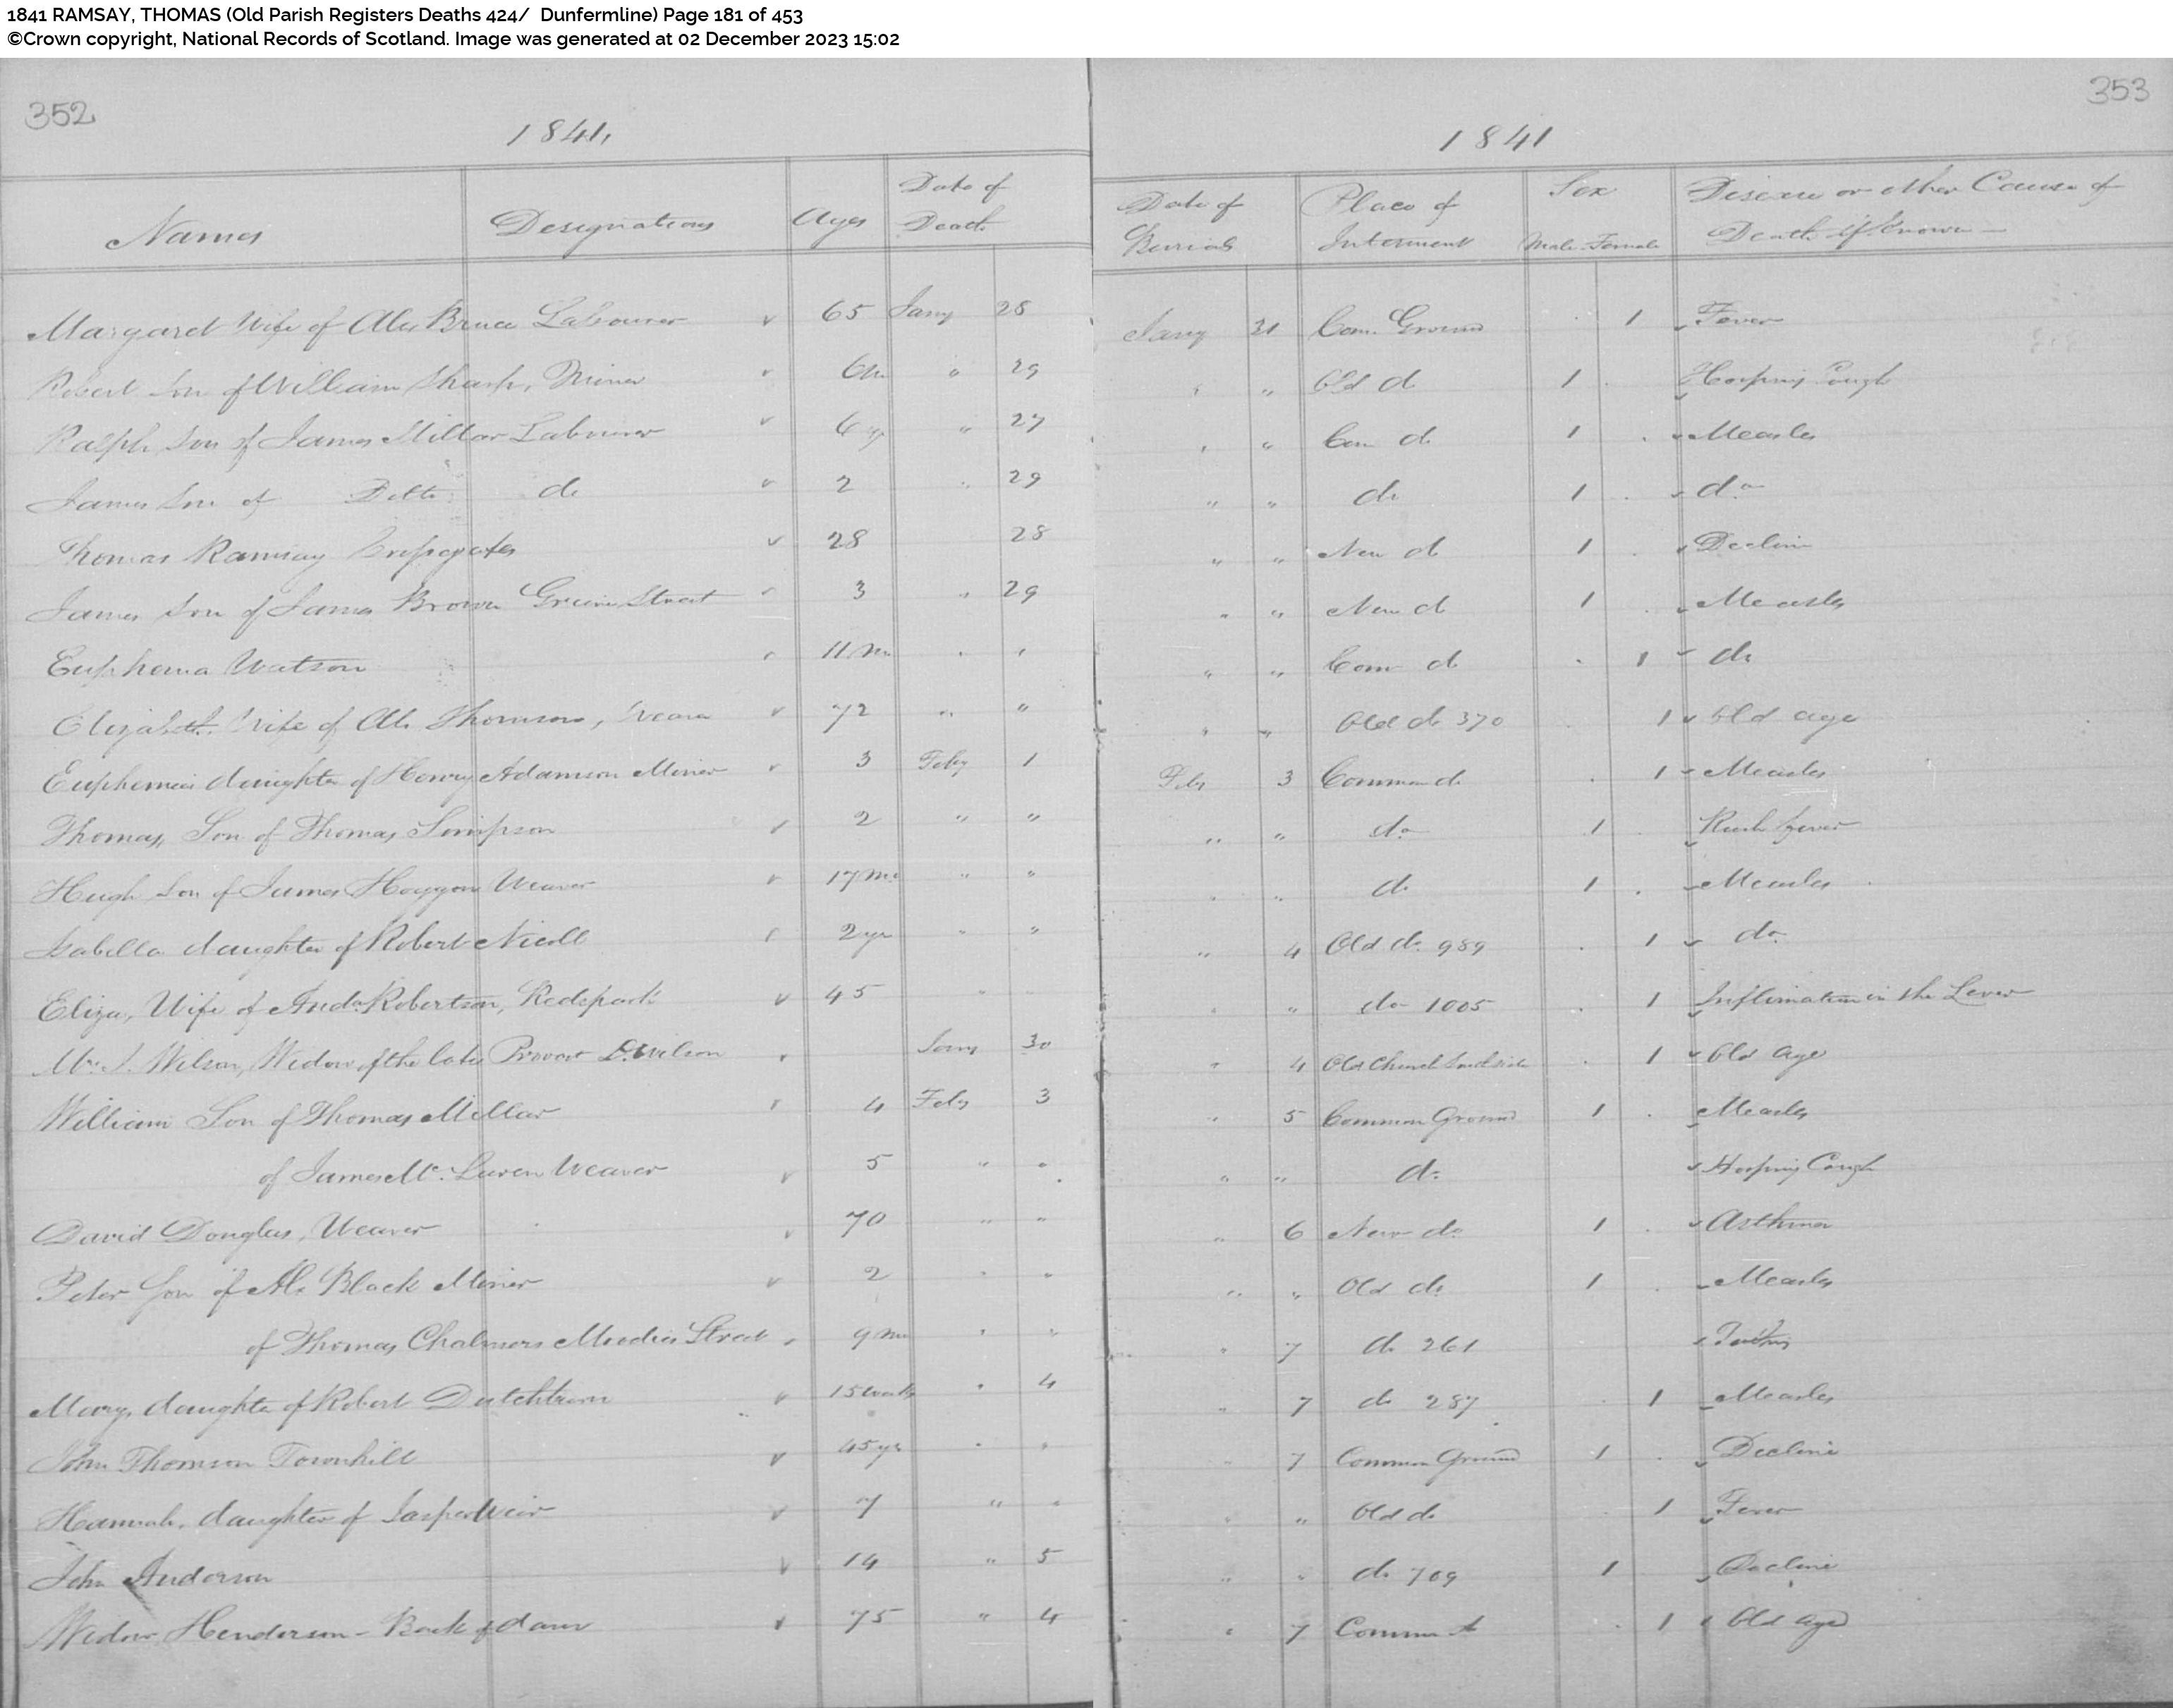 1841 RAMSAY, THOMAS (Old Parish Registers Deaths 424/ Dunfermline) Page 181 of 453
©Crown copyright, National Records of Scotland. Image was generated at 02 December 2023 15:02
352
1841
Names Designations Ages Date of Death
Margaret Wife of Alex Bruce Labourer 65 Jany 28
Robert Son of William Sharp, Miner 6m " 29
Ralph Son of James Millar Labourer 6 yr " 27
James Son of Ditto do 2 " 29
Thomas Ramsay 28 28
James Son of James Brown Street 3 " 29
Euphema Watson 11 Mo " "
Elizabeth Wife of Alex Thomson, 72 " "
Euphemia daughter of Henry Adamson Miner 3 Feby 1
Thomas, Son of Thomas Simpson 2 " "
Hugh Son of James Weaver 17 Mo " "
Isabella daughter of Robert Nicoll 2 yr " "
Eliza, Wife of Andw Robertson, 45 "
Mrs J. Wilson, Widow of the late Provost D. Wilson Jany 30
William Son of Thomas Millar 4 Feby 3
of James Mc Laren Weaver 5 " "
David Douglas, Weaver 70 " "
Peter Son of Al. Black Miner 2 " "
of Thomas Chalmers Moodies Street 9 Mo " "
Mary, daughter of Robert 15 weeks " 4
John Thomson Townhill 45 yrs " "
Hannah, daughter of Jasper Weir 7 " "
John Anderson 14 " 5
Widow Henderson - Back of dam 75 " 4
353
1841
Date of Burial Place of Interment Sex Male Female Disease or other Cause of Death if known
Jany 31 Com. Ground 1 Fever
" " Old do 1 Hooping Cough
" " Com do 1 Measles
" " do 1 do
" " New do 1 Decline
" " New do 1 Measles
" " Com do 1 do
" " Old do 370 1 Old age
Feby 3 Common do 1 Measles
" " do 1 Rush fever
" " do 1 Measles
" 4 Old do 989 1 do
" " do 1005 1 Inflimation in the Lever
" 4 Old Church 1 Old Age
" 5 Common Ground 1 Measles
" " do Hooping Cough
" 6 New do 1 Asthma
" " Old do 1 Measles
" 7 do 261
" 7 do 287 1 Measles
" 7 Common Ground 1 Decline
" " Old do 1 Fever
" " do 709 1 Decline
" 7 Common 1 Old age